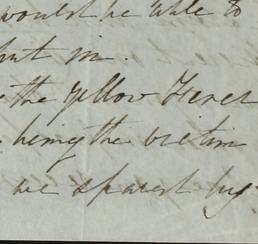 would be able to
put in.
the Yellow Fever
being the victim
we spared by